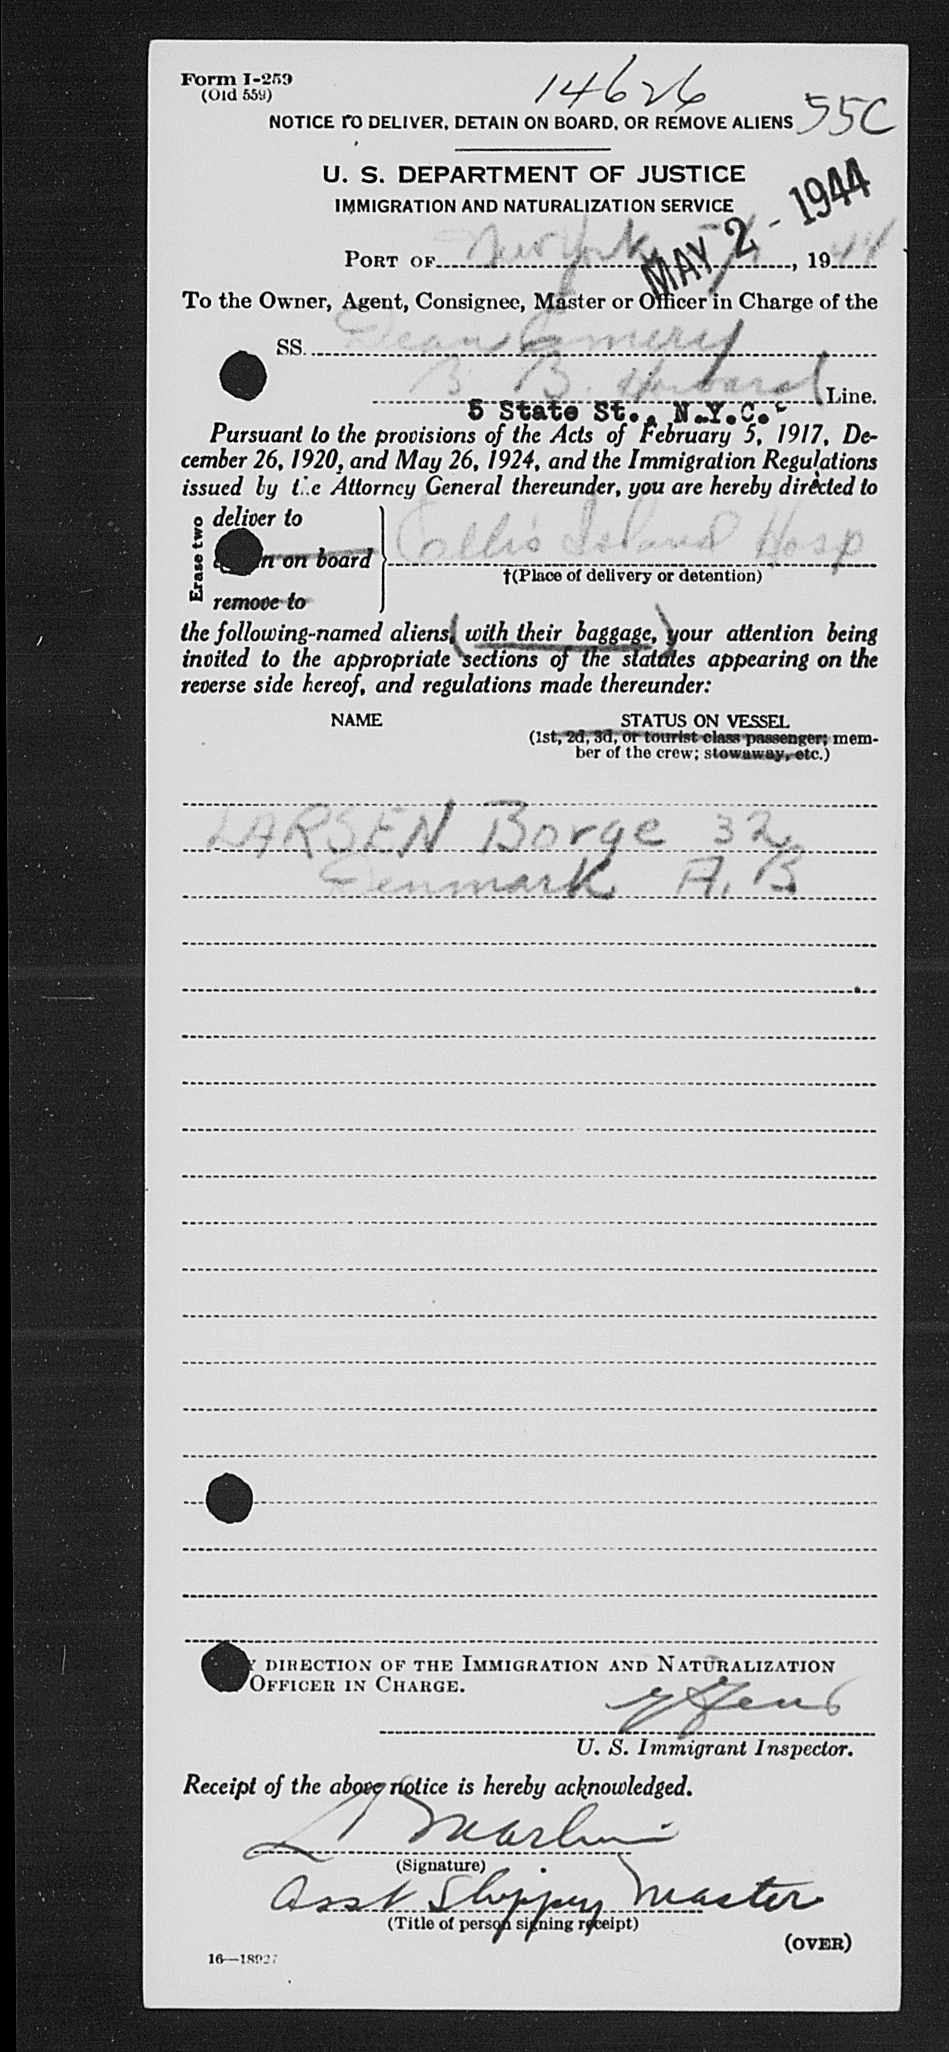 Form I-259
(Old 559)
14626
55C
NOTICE TO DELIVER, DETAIN ON BOARD, OR REMOVE ALIENS
U. S. DEPARTMENT OF JUSTICE
IMMIGRATION AND NATURALIZATION SERVICE
MAY 2 - 1944
PORT OF New York 5/1, 1944
To the Owner, Agent, Consignee, Master or Officer in Charge of the
SS. Dean Emery
B. B. Howard Line.
5 State St., N.Y.C.
Pursuant to the provisions of the Acts of February 5, 1917, De-
cember 26, 1920, and May 26, 1924, and the Immigration Regulations
issued by the Attorney General thereunder, you are hereby directed to
Erase two
deliver to
n on board
remove to
Ellis Island Hosp
†(Place of delivery or detention)
the following-named aliens, (with their baggage,) your attention being
invited to the appropriate sections of the statutes appearing on the
reverse side hereof, and regulations made thereunder:
NAME STATUS ON VESSEL
(1st, 2d, 3d, or tourist class passenger; mem-
ber of the crew; stowaway, etc.)
LARSEN Borge 32
Denmark A.B
Y DIRECTION OF THE IMMIGRATION AND NATURALIZATION
OFFICER IN CHARGE.
U. S. Immigrant Inspector.
Receipt of the above notice is hereby acknowledged.
(Signature)
Asst Shipping Master
(Title of person signing receipt)
(OVER)
16—18927